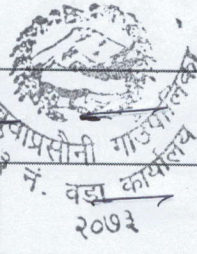 वाप्रसौनी गाउँपालिका
नं. वडा कार्यालय
२०७३